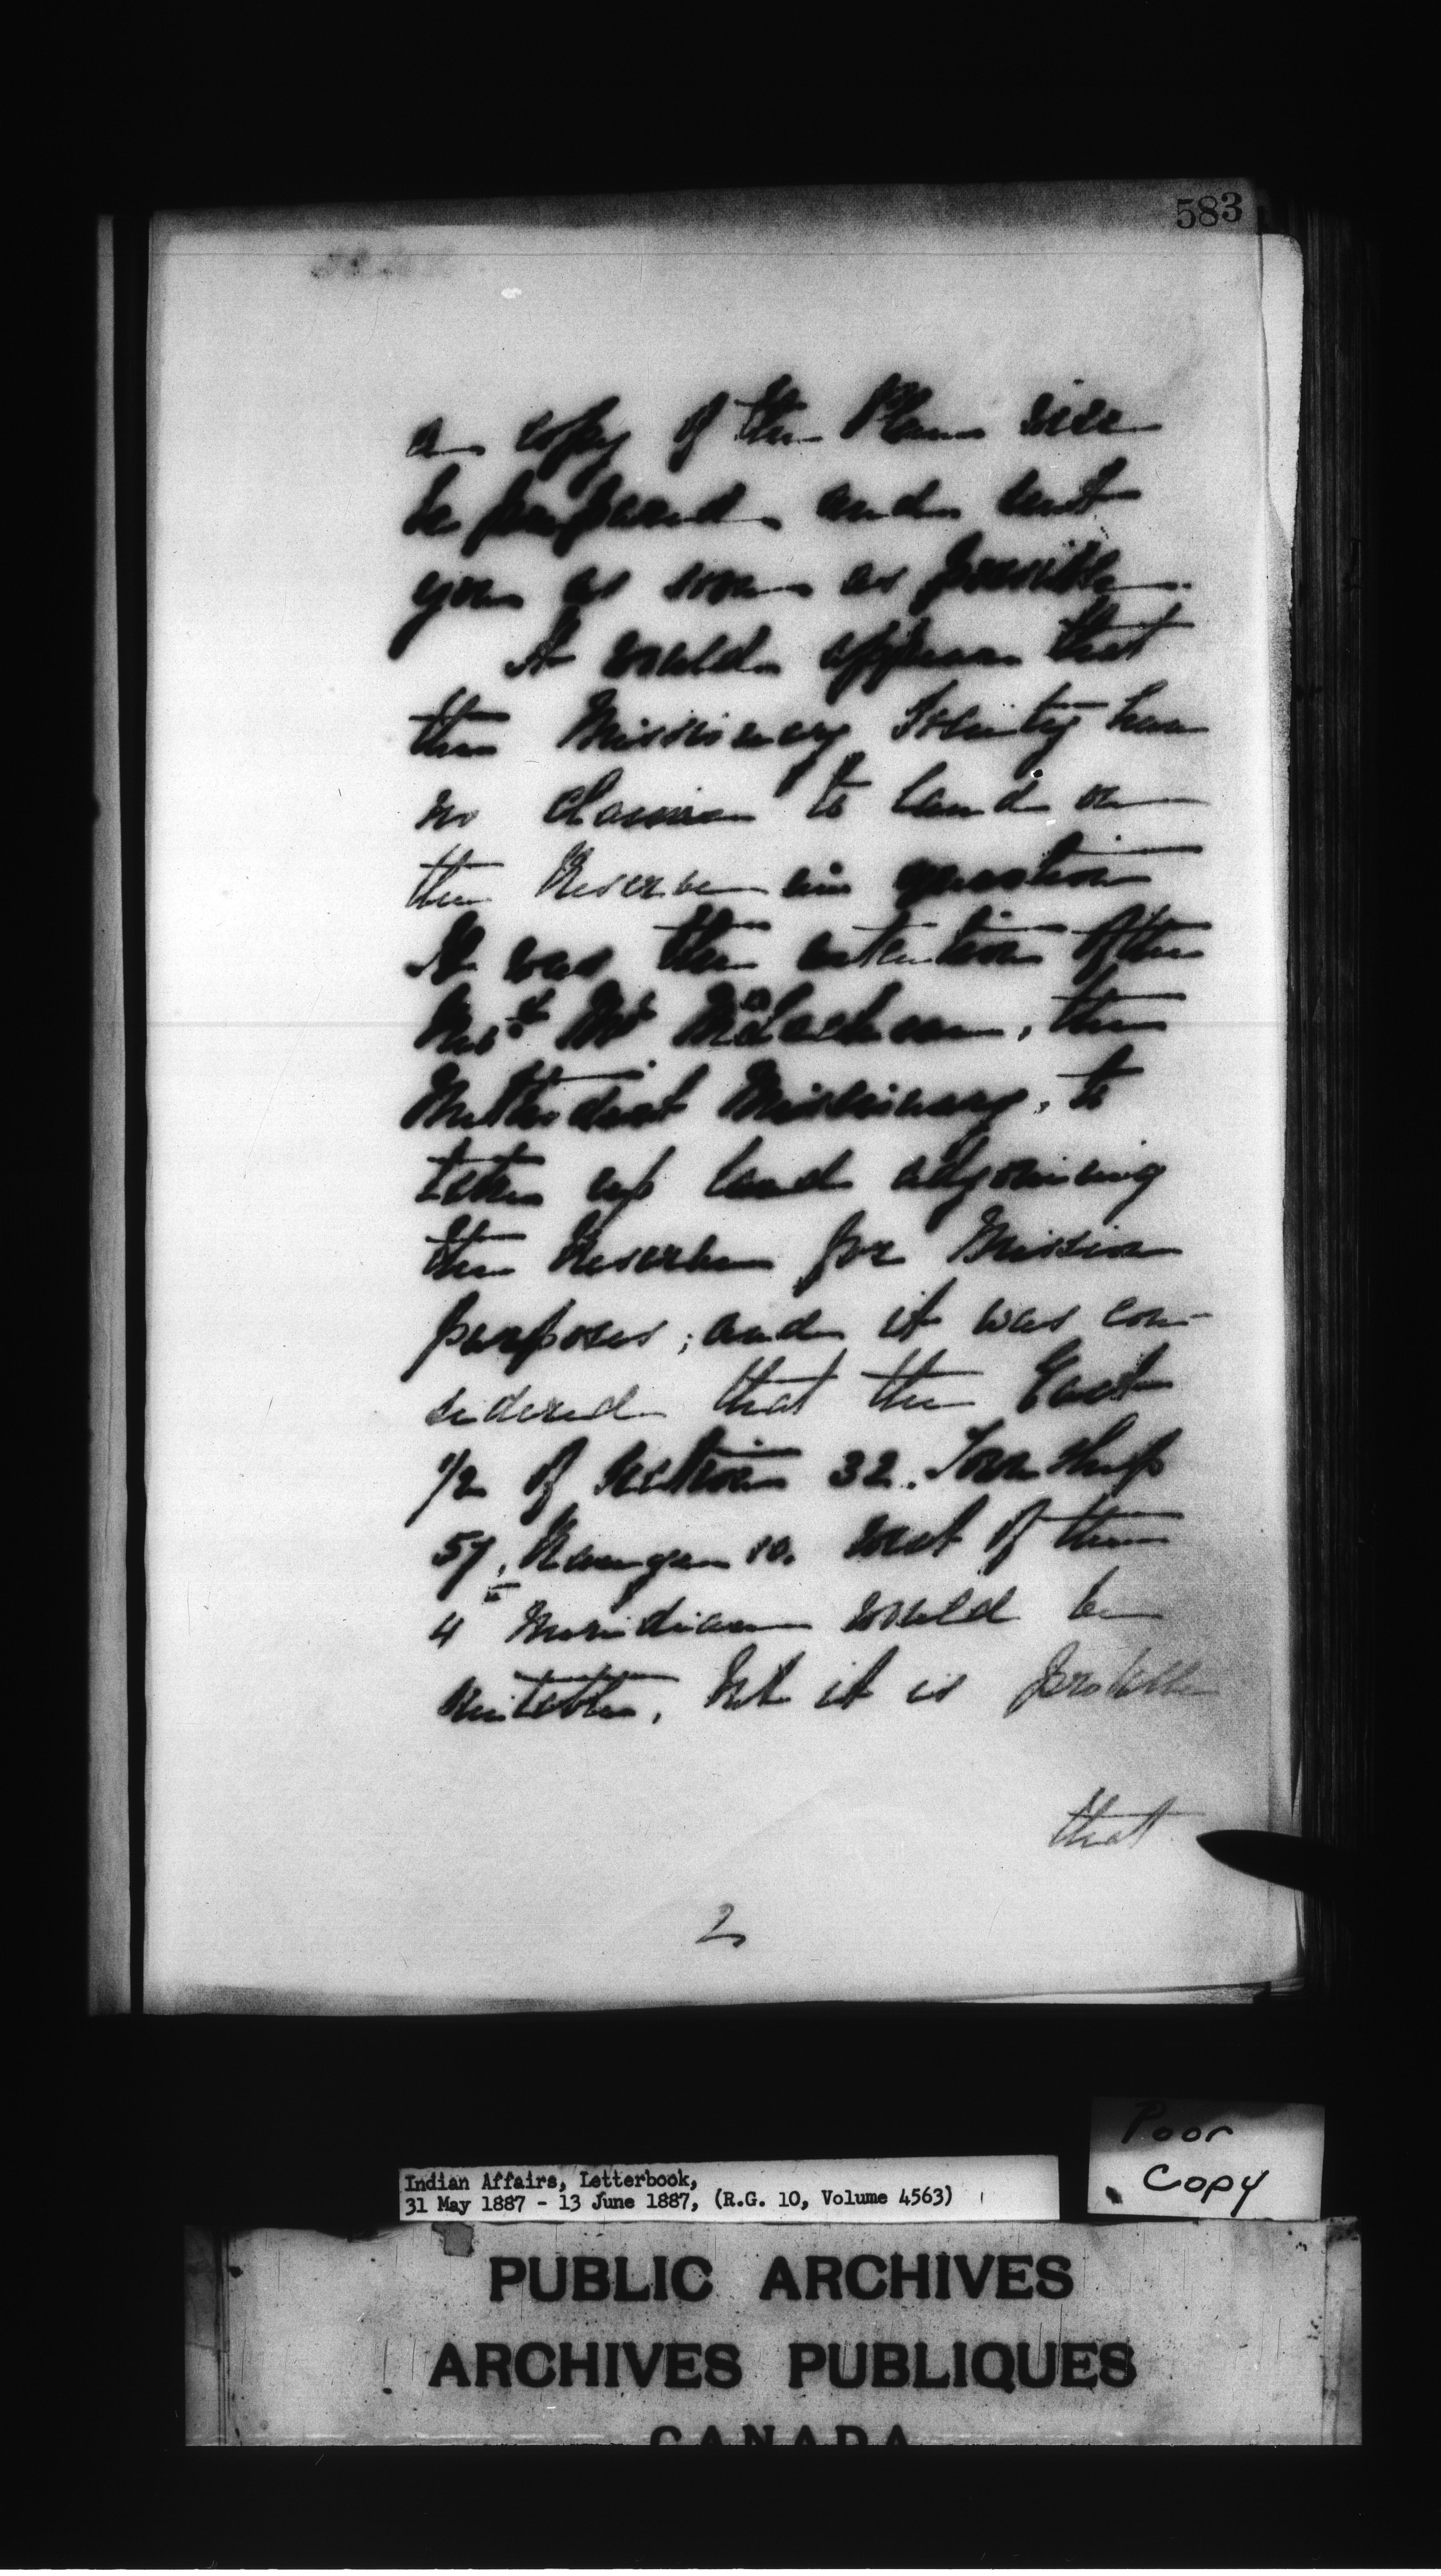 583
a copy of the Plan will
be prepared and sent
you as soon as possible.
It would appear that
the Missionary Society has
no claim to land on
the Reserve in question
It was the intention of the
Revd Mr McLachlan, the
Methodist Missionary, to
take up land adjoining
the Reserve for Mission
purposes; and it was con-
sidered that the East
1/2 of Section 32. Township
57, Range 10. West of the
4 Meridian would be
suitable, but it is probable
that
2
Poor
Copy
Indian Affairs, Letterbook,
31 May 1887 - 13 June 1887, (R.G. 10, Volume 4563)
PUBLIC ARCHIVES
ARCHIVES PUBLIQUES
CANADA